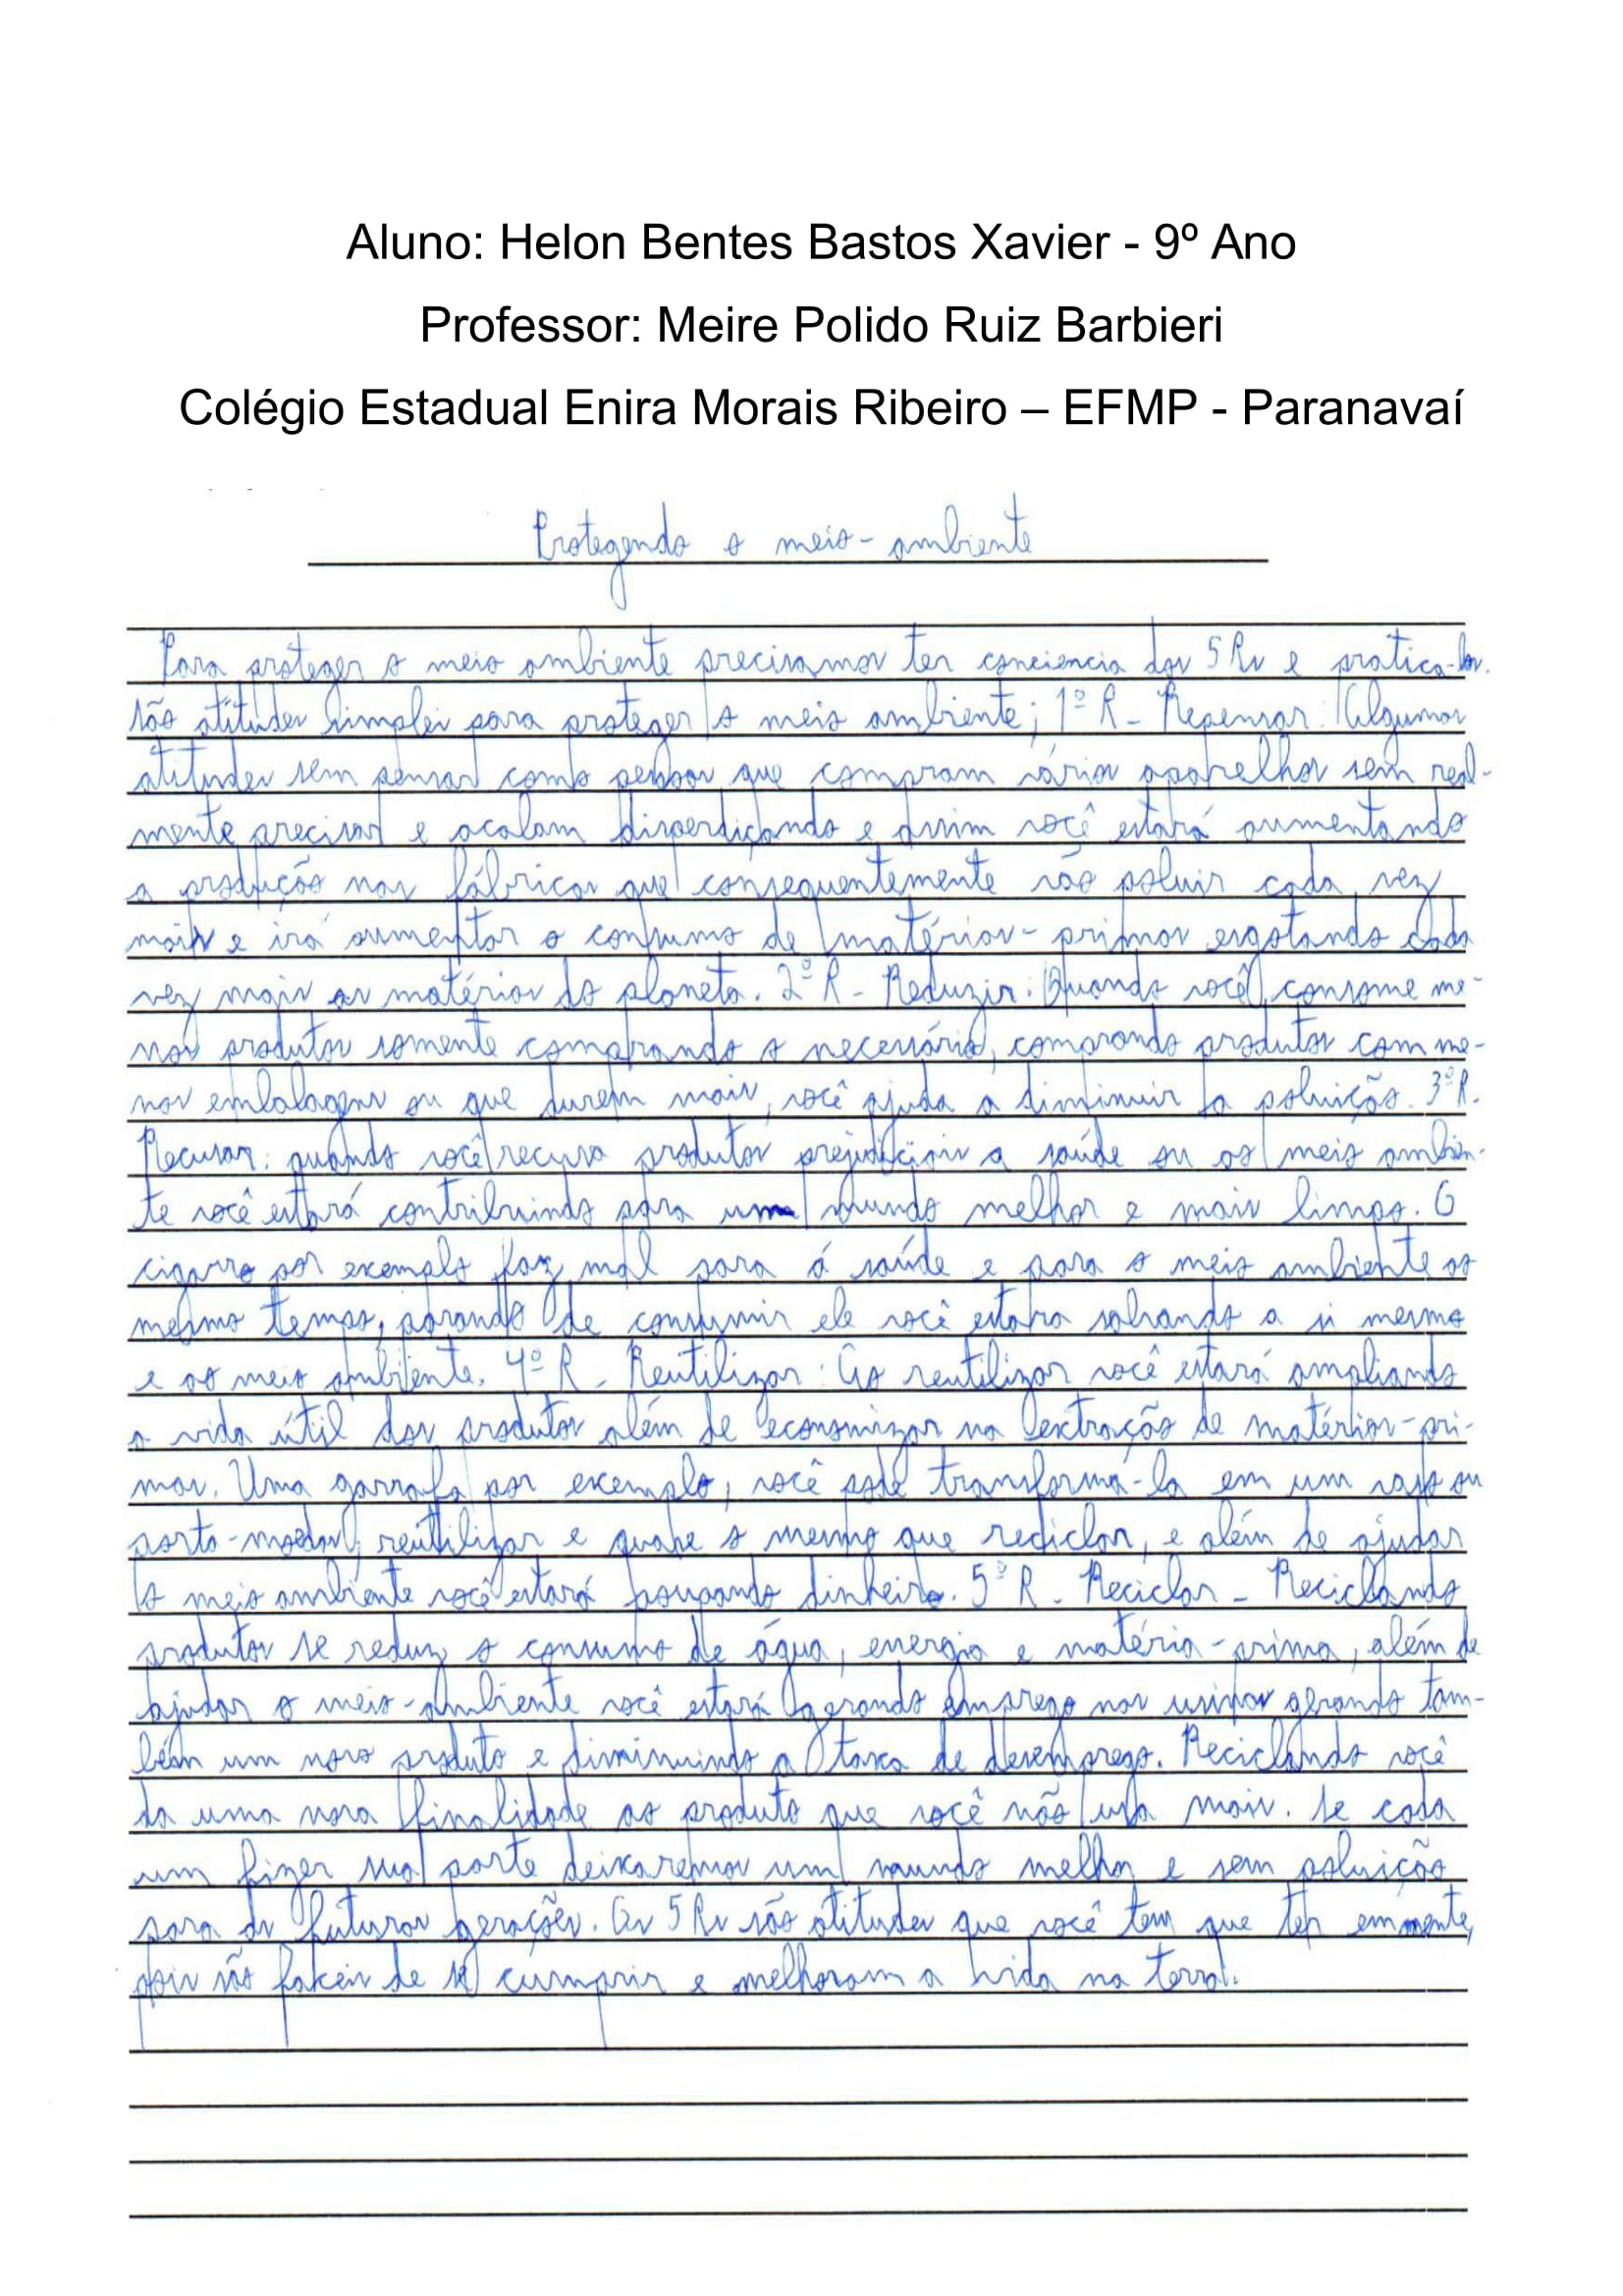 Aluno: Helon Bentes Bastos Xavier - 9º Ano
Professor: Meire Polido Ruiz Barbieri
Colégio Estadual Enira Morais Ribeiro – EFMP - Paranavaí
Protegendo o meio-ambiente
Para proteger o meio ambiente precisamos ter conciencia dos 5 Rs e pratica-los.
são atitudes simples para proteger o meio ambiente; 1º R - Repensar: Algumas
atitudes sem pensar como pessoas que compram vários aparelhos sem real-
mente precisar e acabam disperdiçando e assim você estará aumentando
a produção nas fábricas que consequentemente vão poluir cada vez
mais e irá aumentar o consumo de matérias-primas esgotando cada
vez mais as matérias do planeta. 2º R - Reduzir: Quando você consome me-
nos produtos somente comprando o necessário, comprando produtos com me-
nos embalagens ou que durem mais, você ajuda a diminuir a poluição. 3º R.
Recusar: quando você recusa produtos prejudiciais a saúde ou ao meio ambien-
te você estará contribuindo para um mundo melhor e mais limpo. O
cigarro por exemplo faz mal para á saúde e para o meio ambiente ao
mesmo tempo, parando de consumir ele você estara salvando a si mesmo
e ao meio ambiente. 4º R - Reutilizar: Ao reutilizar você estará ampliando
a vida útil dos produtos além de economizar na extração de matérias-pri-
mas. Uma garrafa por exemplo, você pode transformá-la em um vaso ou
porta-moedas, reutilizar e quase o mesmo que reciclar, e além de ajudar
o meio ambiente você estará poupando dinheiro. 5º R - Reciclar - Reciclando
produtos se reduz o consumo de água, energia e matéria-prima, além de
ajudar o meio-ambiente você estará gerando emprego nas usinas gerando tam-
bém um novo produto e diminuindo a taxa de desemprego. Reciclando você
da uma nova finalidade ao produto que você não usa mais. Se cada
um fizer sua parte deixaremos um mundo melhor e sem poluição
para as futuras gerações. Os 5 Rs são atitudes que você tem que ter em mente,
pois são faceis de se cumprir e melhoram a vida na terra.